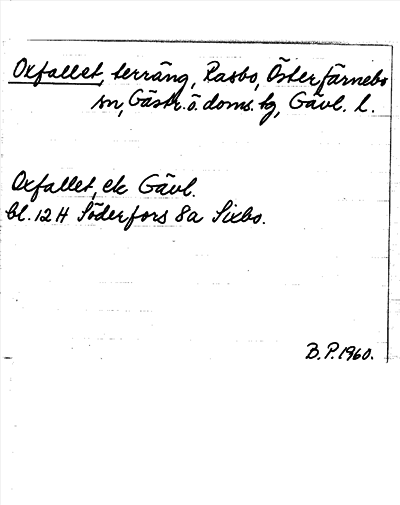 Oxfallet, terräng, Rasbo, Österfärnebo
sn, Gästr. ö. doms. tg, Gävl. l.
Oxfallet, ek Gävl.
bl. 12 H Söderfors 8a Sixbo.
B.P. 1960.